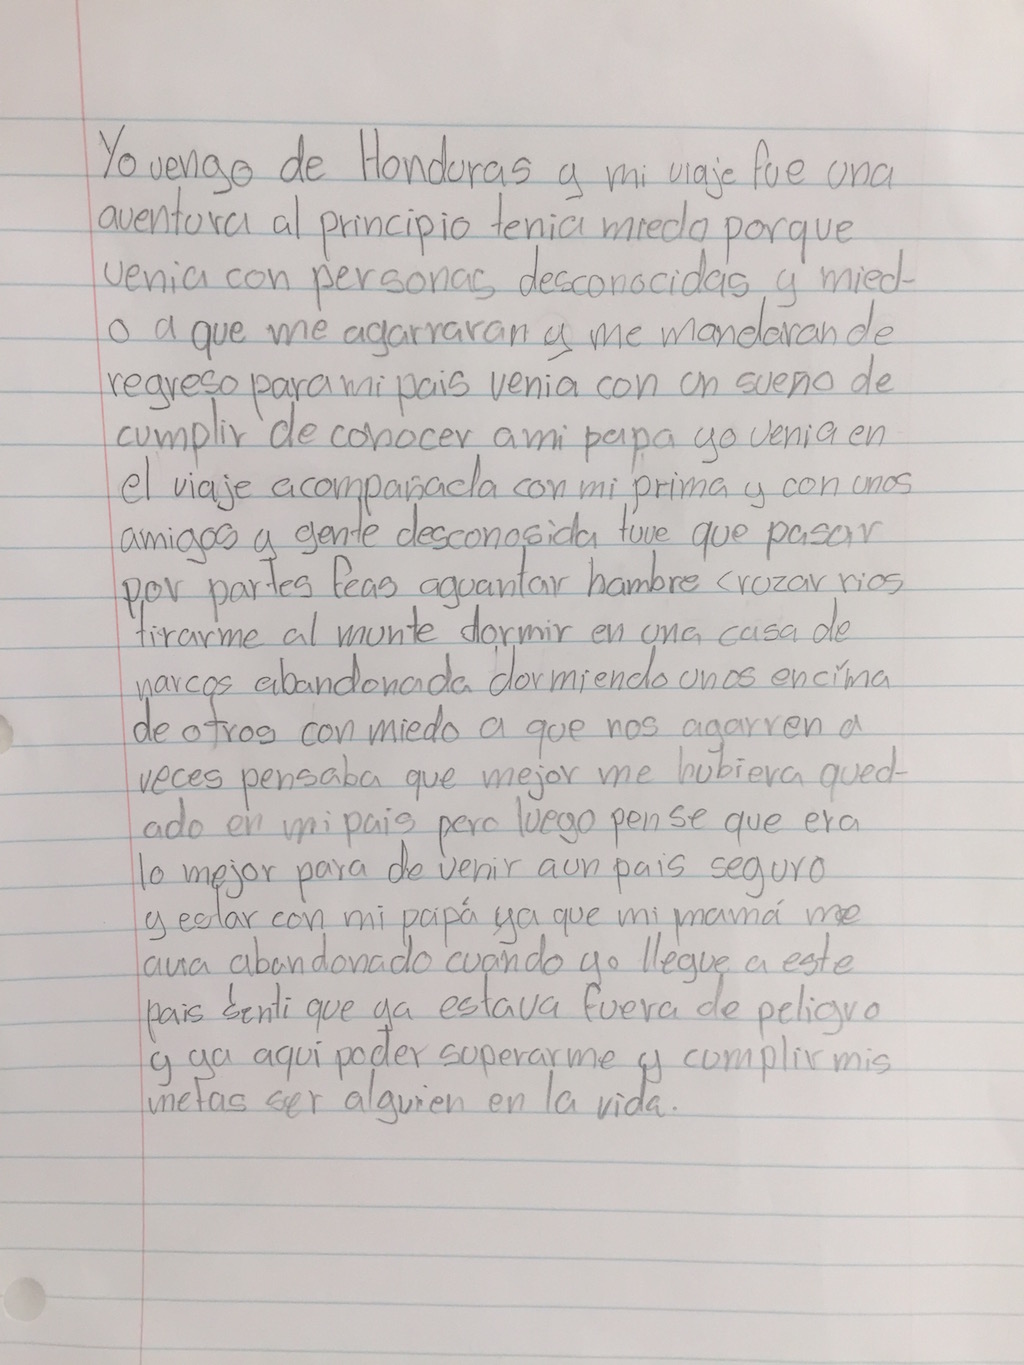 Yo vengo de Honduras y mi viaje fue una
aventura al principio tenia miedo porque
venia con personas desconocidas y mied-
o a que me agarraran y me mandaran de
regreso para mi pais venia con un sueno de
cumplir de conocer a mi papa yo venia en
el viaje acompañada con mi prima y con unos
amigos y gente desconosida tuve que pasar
por partes feas aguantar hambre cruzar rios
tirarme al munte dormir en una casa de
narcos abandonada dormiendo unos encima
de otros con miedo a que nos agarren a
veces pensaba que mejor me hubiera qued-
ado en mi pais pero luego pense que era
lo mejor para de venir aun pais seguro
y estar con mi papá ya que mi mamá me
avia abandonado cuando yo llegue a este
pais senti que ya estava fuera de peligro
y ya aqui poder superarme y cumplir mis
metas ser alguien en la vida.